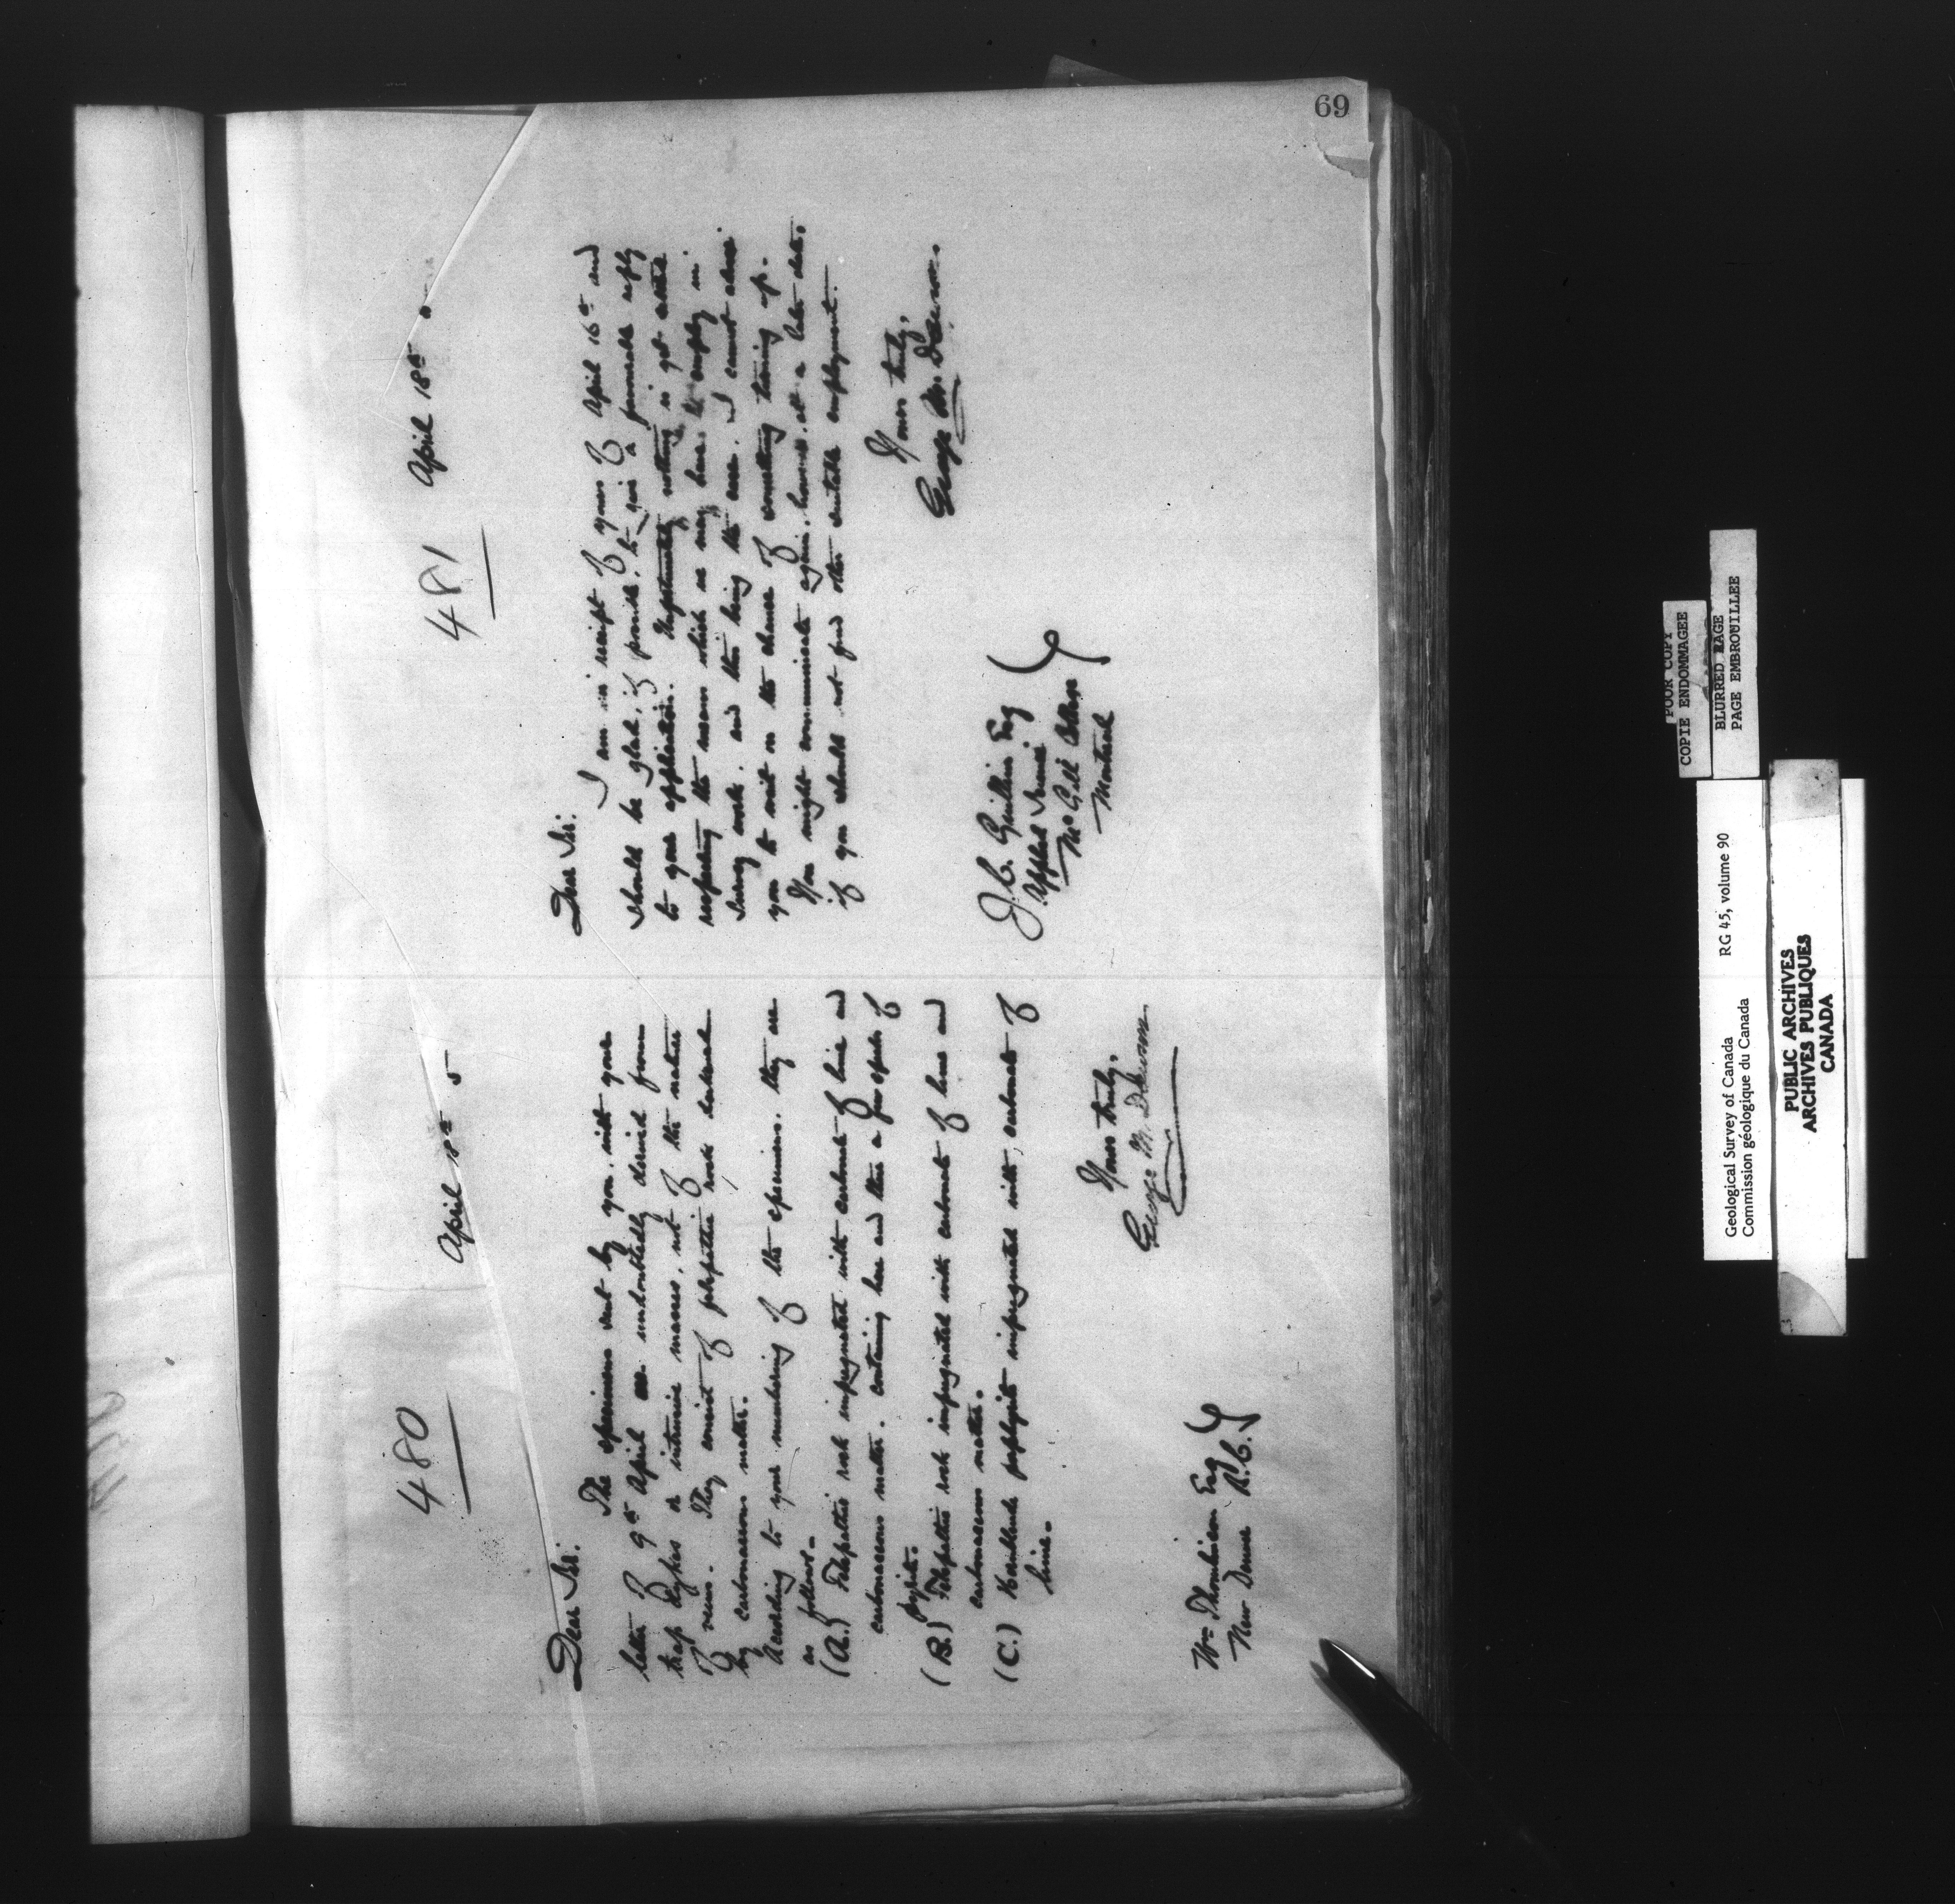 69
480
April 18th 5
Dear Sir:
The specimens sent by you, with your
letter of 9th April are undoubtedly derived from
trap dykes or intrusive masses, not of the nature
of veins. They consist of felspathic rock darkened
by carbonaceous matter.
According to your numbering of the specimens, they are
as follows.-
(A.) Felspathic rock impregnated with carbonate of lime and
carbonaceous matter. Containing here and there a few specks of
pyrite.
(B.) Felspathic rock impregnated with carbonate of lime and
carbonaceous matter.
(C.) Hornblende porphyrite impregnated with carbonate of
lime.
Yours truly,
George M. Dawson
Wm Thomlinson Esq
New Denver B.C.
481
April 18th
Dear Sir:
I am in receipt of yours of April 16th and
should be glad, if possible, to give a favourable reply
to your application. Unfortunately nothing is yet settled
respecting the means which we may have to employ in
Survey work, and this being the case, I cannot advise
you to wait on the chance of something turning up.
You might communicate again, however, at a later date,
if you should not find other suitable employment.
Yours truly,
George M. Dawson.
J.C. Gwillim Esq
Applied Science
McGill College
Montreal
POOR COPY
COPIE ENDOMMAGEE
BLURRED PAGE
PAGE EMBROUILLEE
Geological Survey of Canada RG 45, volume 90
Commission géologique du Canada
PUBLIC ARCHIVES
ARCHIVES PUBLIQUES
CANADA